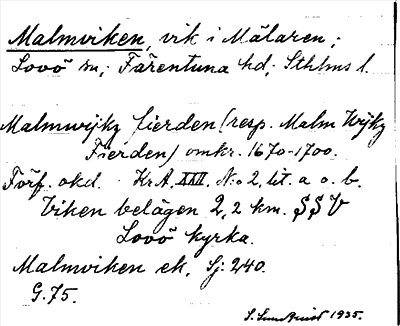 Malmviken, vik i Mälaren;
Lovö sn; Färentuna hd; Sthlms l.
Malmwijkz fierden (resp. Malm Wijkz
Fierden) omkr. 1670-1700.
Förf. okd. Kr A. XXII. N:o 2, lit. a o. b.
Viken belägen 2,2 km. SSV
Lovö kyrka.
Malmviken ek, Sj: 240.
G. 75.
S. Sundqvist 1935.